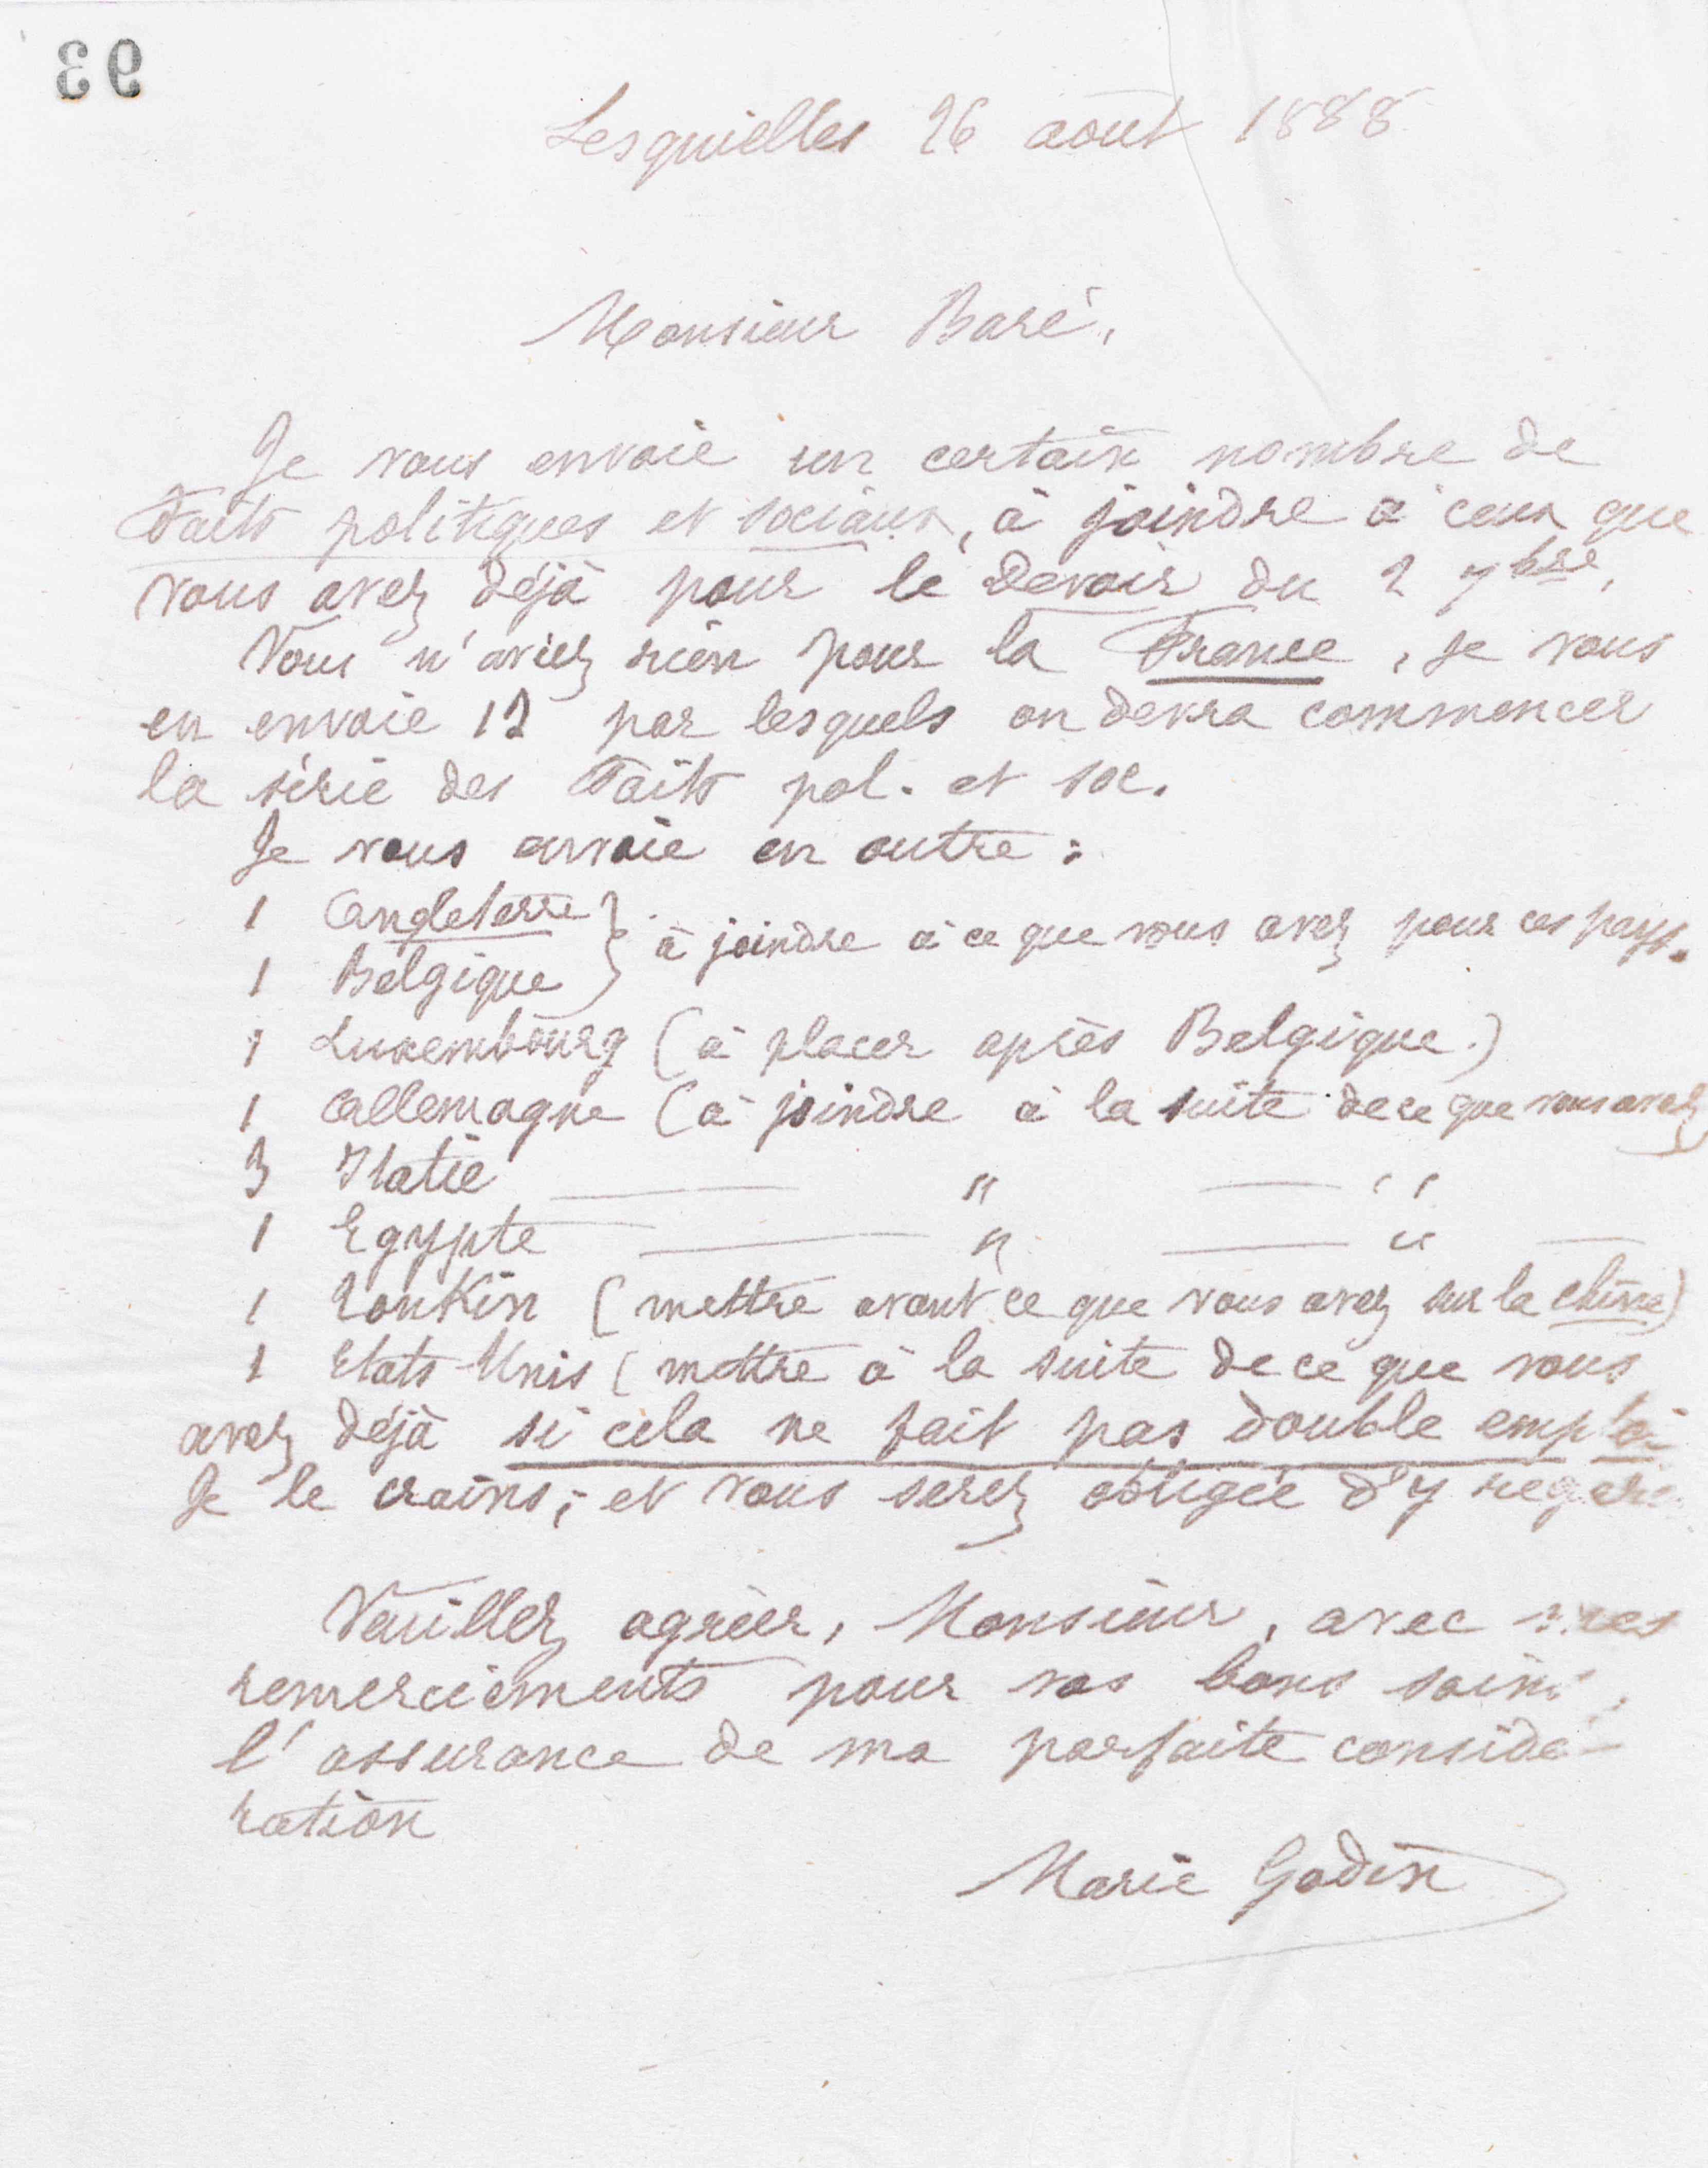 93
Lesquielles 26 août 1888
Monsieur Baré,
Je vous envoie un certain nombre de
Faits politiques et sociaux, à joindre à ceux que
vous avez déjà pour le Devoir du 2 7bre.
Vous n'aviez rien pour la France, je vous
en envoie 12 par lesquels on devra commencer
la série des Faits pol. et soc.
Je vous envoie en outre :
1 Angleterre
1 Belgique } à joindre à ce que vous avez pour ces pays.
1 Luxembourg (à placer après Belgique.)
1 Allemagne (à joindre à la suite de ce que vous avez)
3 Italie — " — "
1 Egypte — " — " —
1 Tonkin (mettre avant ce que vous avez sur la Chine)
1 Etats-Unis (mettre à la suite de ce que vous
avez déjà si cela ne fait pas double emploi
Je le crains ; et vous serez obligée d'y
Veuillez agréer, Monsieur, avec mes
remerciements pour vos bons soins,
l'assurance de ma parfaite considé-
ration
Marie Godin